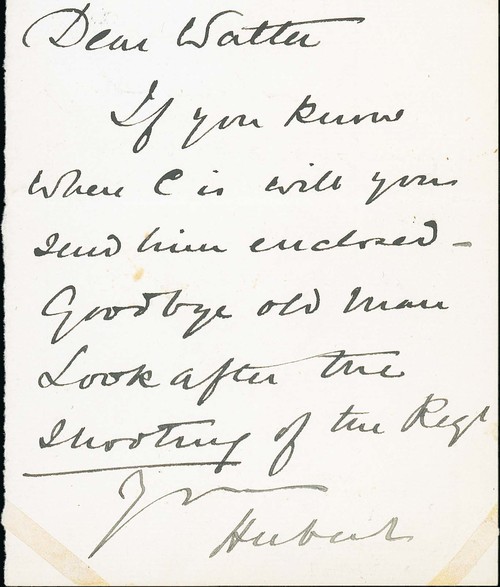 Dear Walter
If you know
where C is will you
send him enclosed -
Goodbye old man
Look after the
shooting of the Regt
Yrs
Hubert